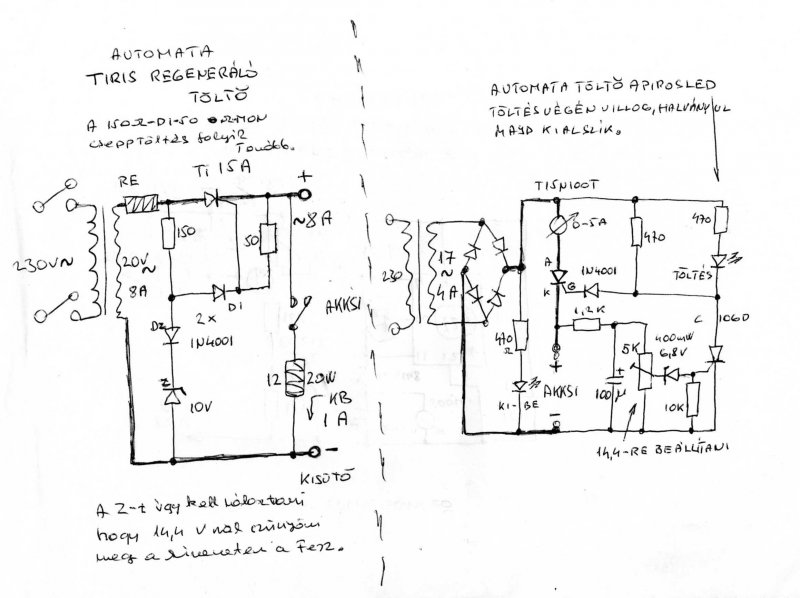 AUTOMATA
TIRIS REGENERÁLÓ
TÖLTŐ
A 150Ω-Di-50 OHMON
csepptöltés folyik
Tovább.
Ti 15A
RE
+
~8A
150
50
230V~
20V
~
8A
Di
2x
AKKSI
DZ
1N4001
Z
10V
12
20W
KB
1 A
-
KISÜTŐ
A Z-t úgy kell
hogy 14,4 V nál szűnjön
meg a kimeneten a Fesz.
AUTOMATA TÖLTŐ A PIROS LED
TÖLTÉS VÉGÉN VILLOG, HALVÁNYUL
MAJD KIALSZIK.
T15N100T
0-5A
470
470
A
K
G
1N4001
TÖLTÉS
230
17
~
4A
470
Ω
KI-BE
1,2K
+
AKKSI
-
+
100µ
5K
400mW
6,8V
C
106D
10K
14,4-RE BEÁLLÍTANI